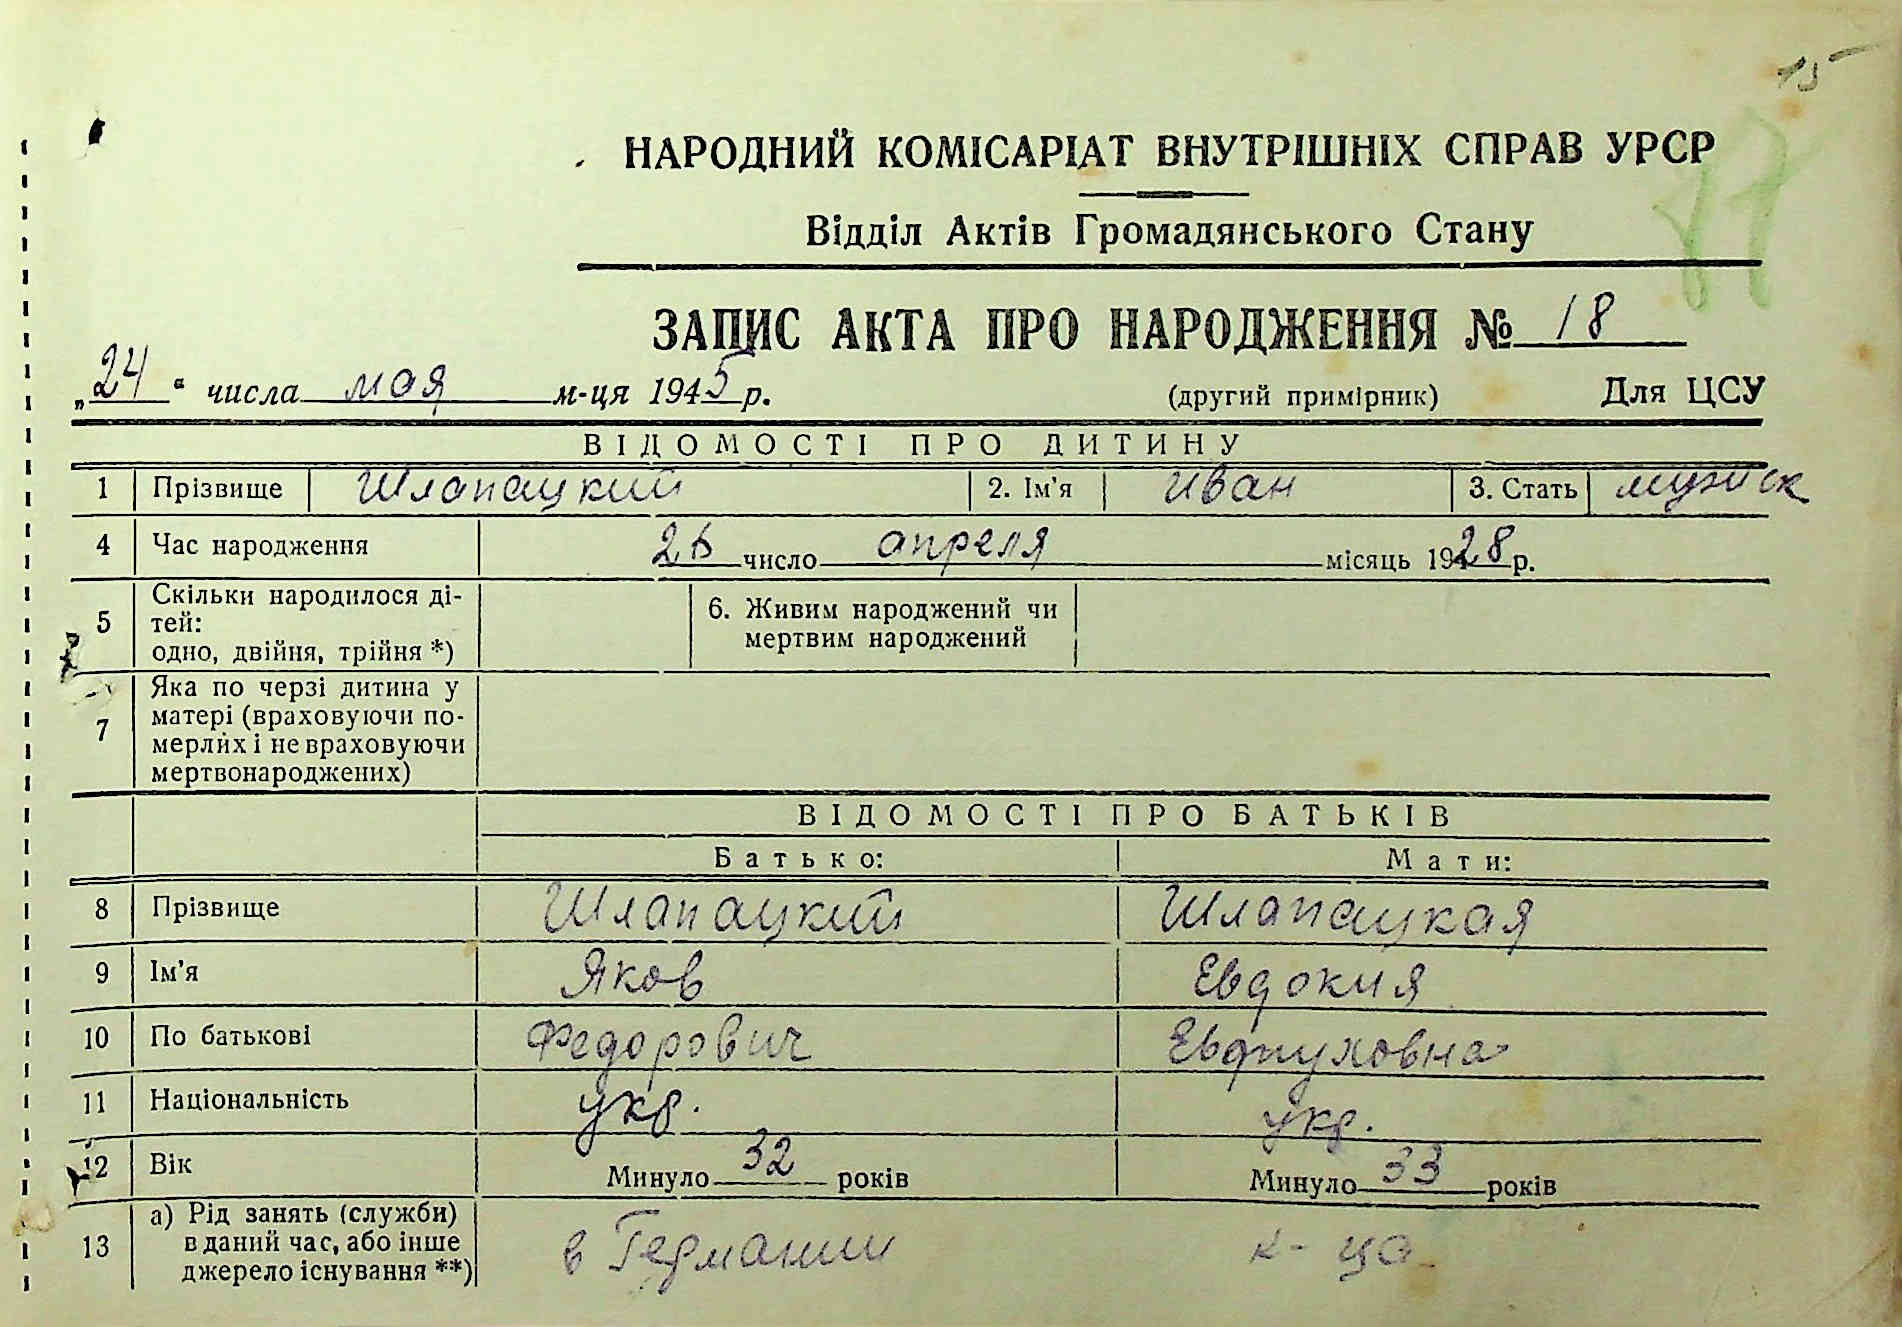 15
НАРОДНИЙ КОМІСАРІАТ ВНУТРІШНІХ СПРАВ УРСР
Відділ Актів Громадянського Стану
ЗАПИС АКТА ПРО НАРОДЖЕННЯ № 18
„24“ числа мая м-ця 1945 р. (другий примірник) Для ЦСУ
ВІДОМОСТІ ПРО ДИТИНУ
1 Прізвище Шлапацкий 2. Ім'я Иван 3. Стать мужск
4 Час народження 26 число апреля місяць 1928 р.
5 Скільки народилося ді-
тей:
одно, двійня, трійня *)
6. Живим народжений чи
мертвим народжений
7 Яка по черзі дитина у
матері (враховуючи по-
мерлих і не враховуючи
мертвонароджених)
ВІДОМОСТІ ПРО БАТЬКІВ
Батько: Мати:
8 Прізвище Шлапацкий Шлапацкая
9 Ім'я Яков Евдокия
10 По батькові Федорович
11 Національність укр. укр.
12 Вік Минуло 32 років Минуло 33 років
13 а) Рід занять (служби)
в даний час, або інше
джерело існування **)
в Германии к-ца